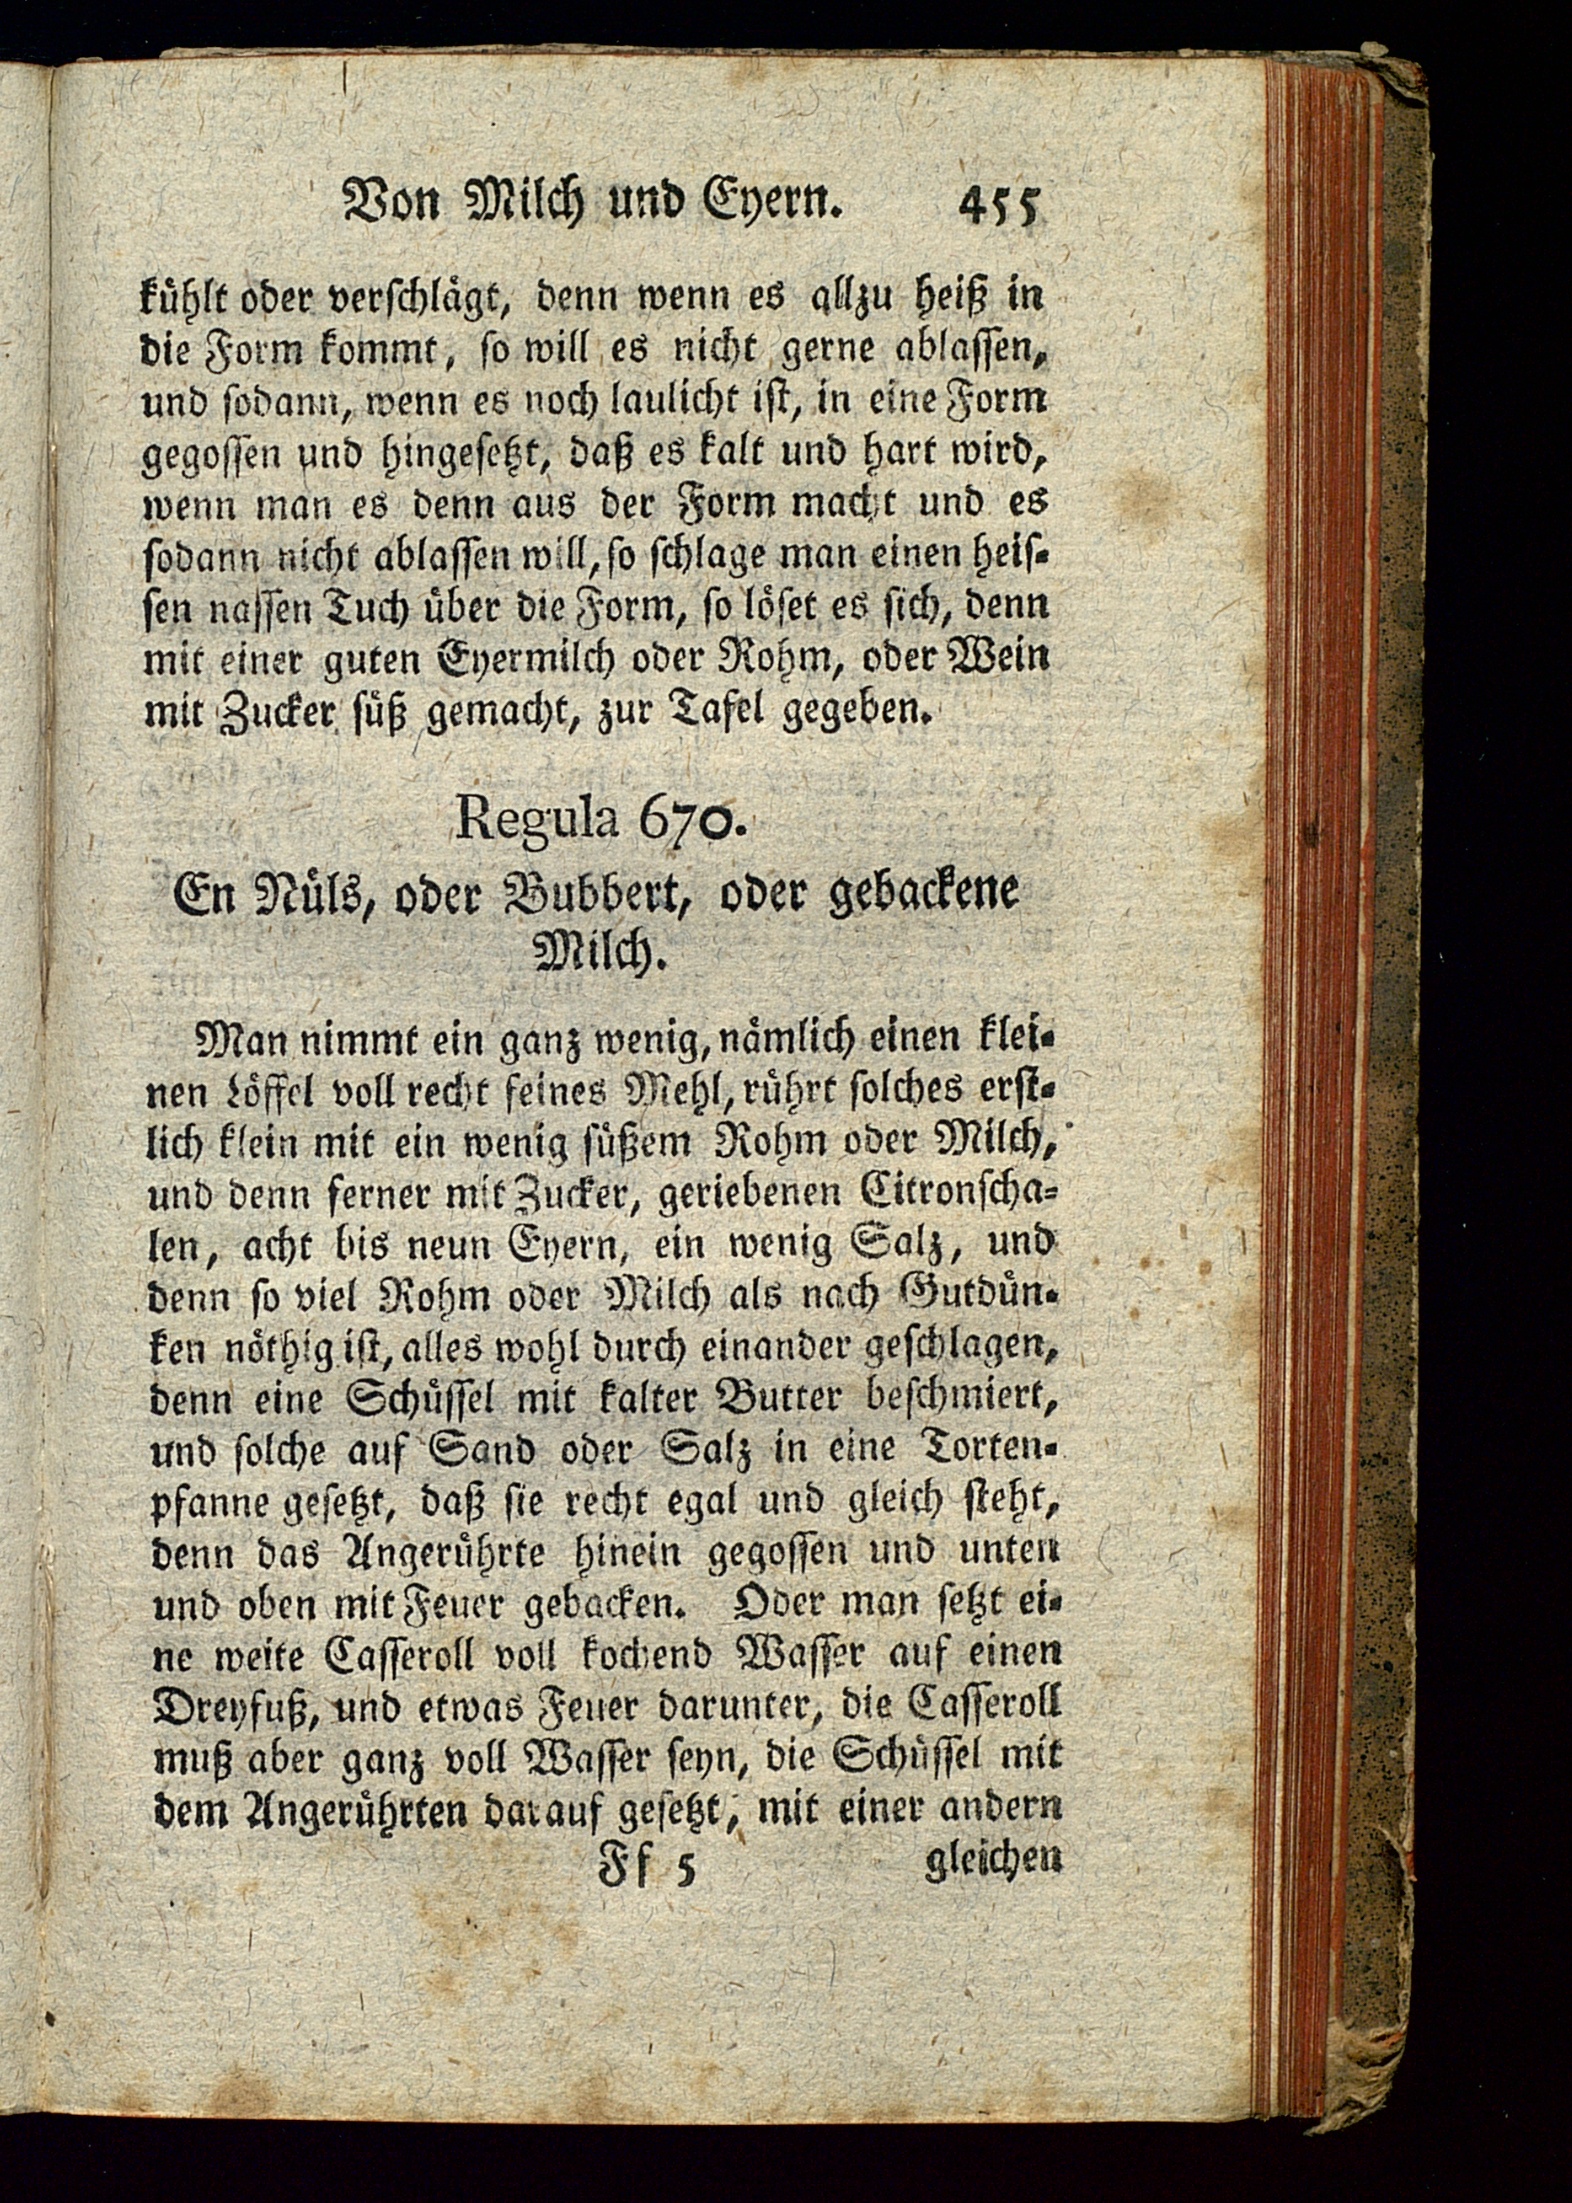 Von Milch und Eyern. 455
kühlt oder verschlägt, denn wenn es allzu heiß in
die Form kommt, so will es nicht gerne ablassen,
und sodann, wenn es noch laulicht ist, in eine Form
gegossen und hingesetzt, daß es kalt und hart wird,
wenn man es denn aus der Form macht und es
sodann nicht ablassen will, so schlage man einen heis-
sen nassen Tuch über die Form, so löset es sich, denn
mit einer guten Eyermilch oder Rohm, oder Wein
mit Zucker süß gemacht, zur Tafel gegeben.
Regula 670.
En Nüls, oder Bubbert, oder gebackene
Milch.
Man nimmt ein ganz wenig, nämlich einen klei-
nen Löffel voll recht feines Mehl, rührt solches erst-
lich klein mit ein wenig süßem Rohm oder Milch,
und denn ferner mit Zucker, geriebenen Citronscha-
len, acht bis neun Eyern, ein wenig Salz, und
denn so viel Rohm oder Milch als nach Gutdün-
ken nöthig ist, alles wohl durch einander geschlagen,
denn eine Schüssel mit kalter Butter beschmiert,
und solche auf Sand oder Salz in eine Torten-
pfanne gesetzt, daß sie recht egal und gleich steht,
denn das Angerührte hinein gegossen und unten
und oben mit Feuer gebacken. Oder man setzt ei-
ne weite Casseroll voll kochend Wasser auf einen
Dreyfuß, und etwas Feuer darunter, die Casseroll
muß aber ganz voll Wasser seyn, die Schüssel mit
dem Angerührten darauf gesetzt, mit einer andern
Ff 5 gleichen